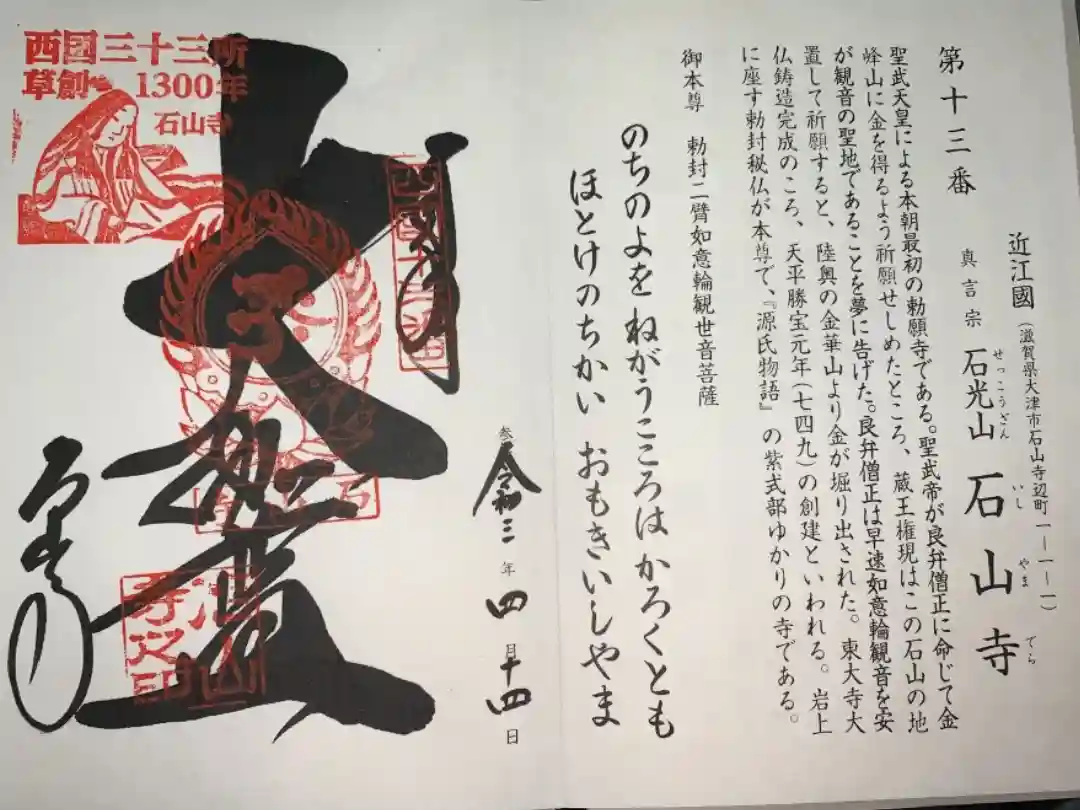 第十三番
近江國(滋賀県大津市石山寺辺町一ー一ー一)
真言宗 石光山 石山寺
せっこうざん いしやまでら
聖武天皇による本朝最初の勅願寺である。聖武帝が良弁僧正に命じて金
峰山に金を得るよう祈願せしめたところ、蔵王権現はこの石山の地
が観音の聖地であることを夢に告げた。良弁僧正は早速如意輪観音を安
置して祈願すると、陸奥の金華山より金が堀り出された。東大寺大
仏鋳造完成のころ、天平勝宝元年(七四九)の創建といわれる。岩上
に座す勅封秘仏が本尊で、『源氏物語』の紫式部ゆかりの寺である。
御本尊 勅封二臂如意輪観世音菩薩
のちのよを ねがうこころは かろくとも
ほとけのちかい おもきいしやま
参拝
令和三年四月十四日
西國三十三所
草創1300年
石山寺
大伽藍
石山寺